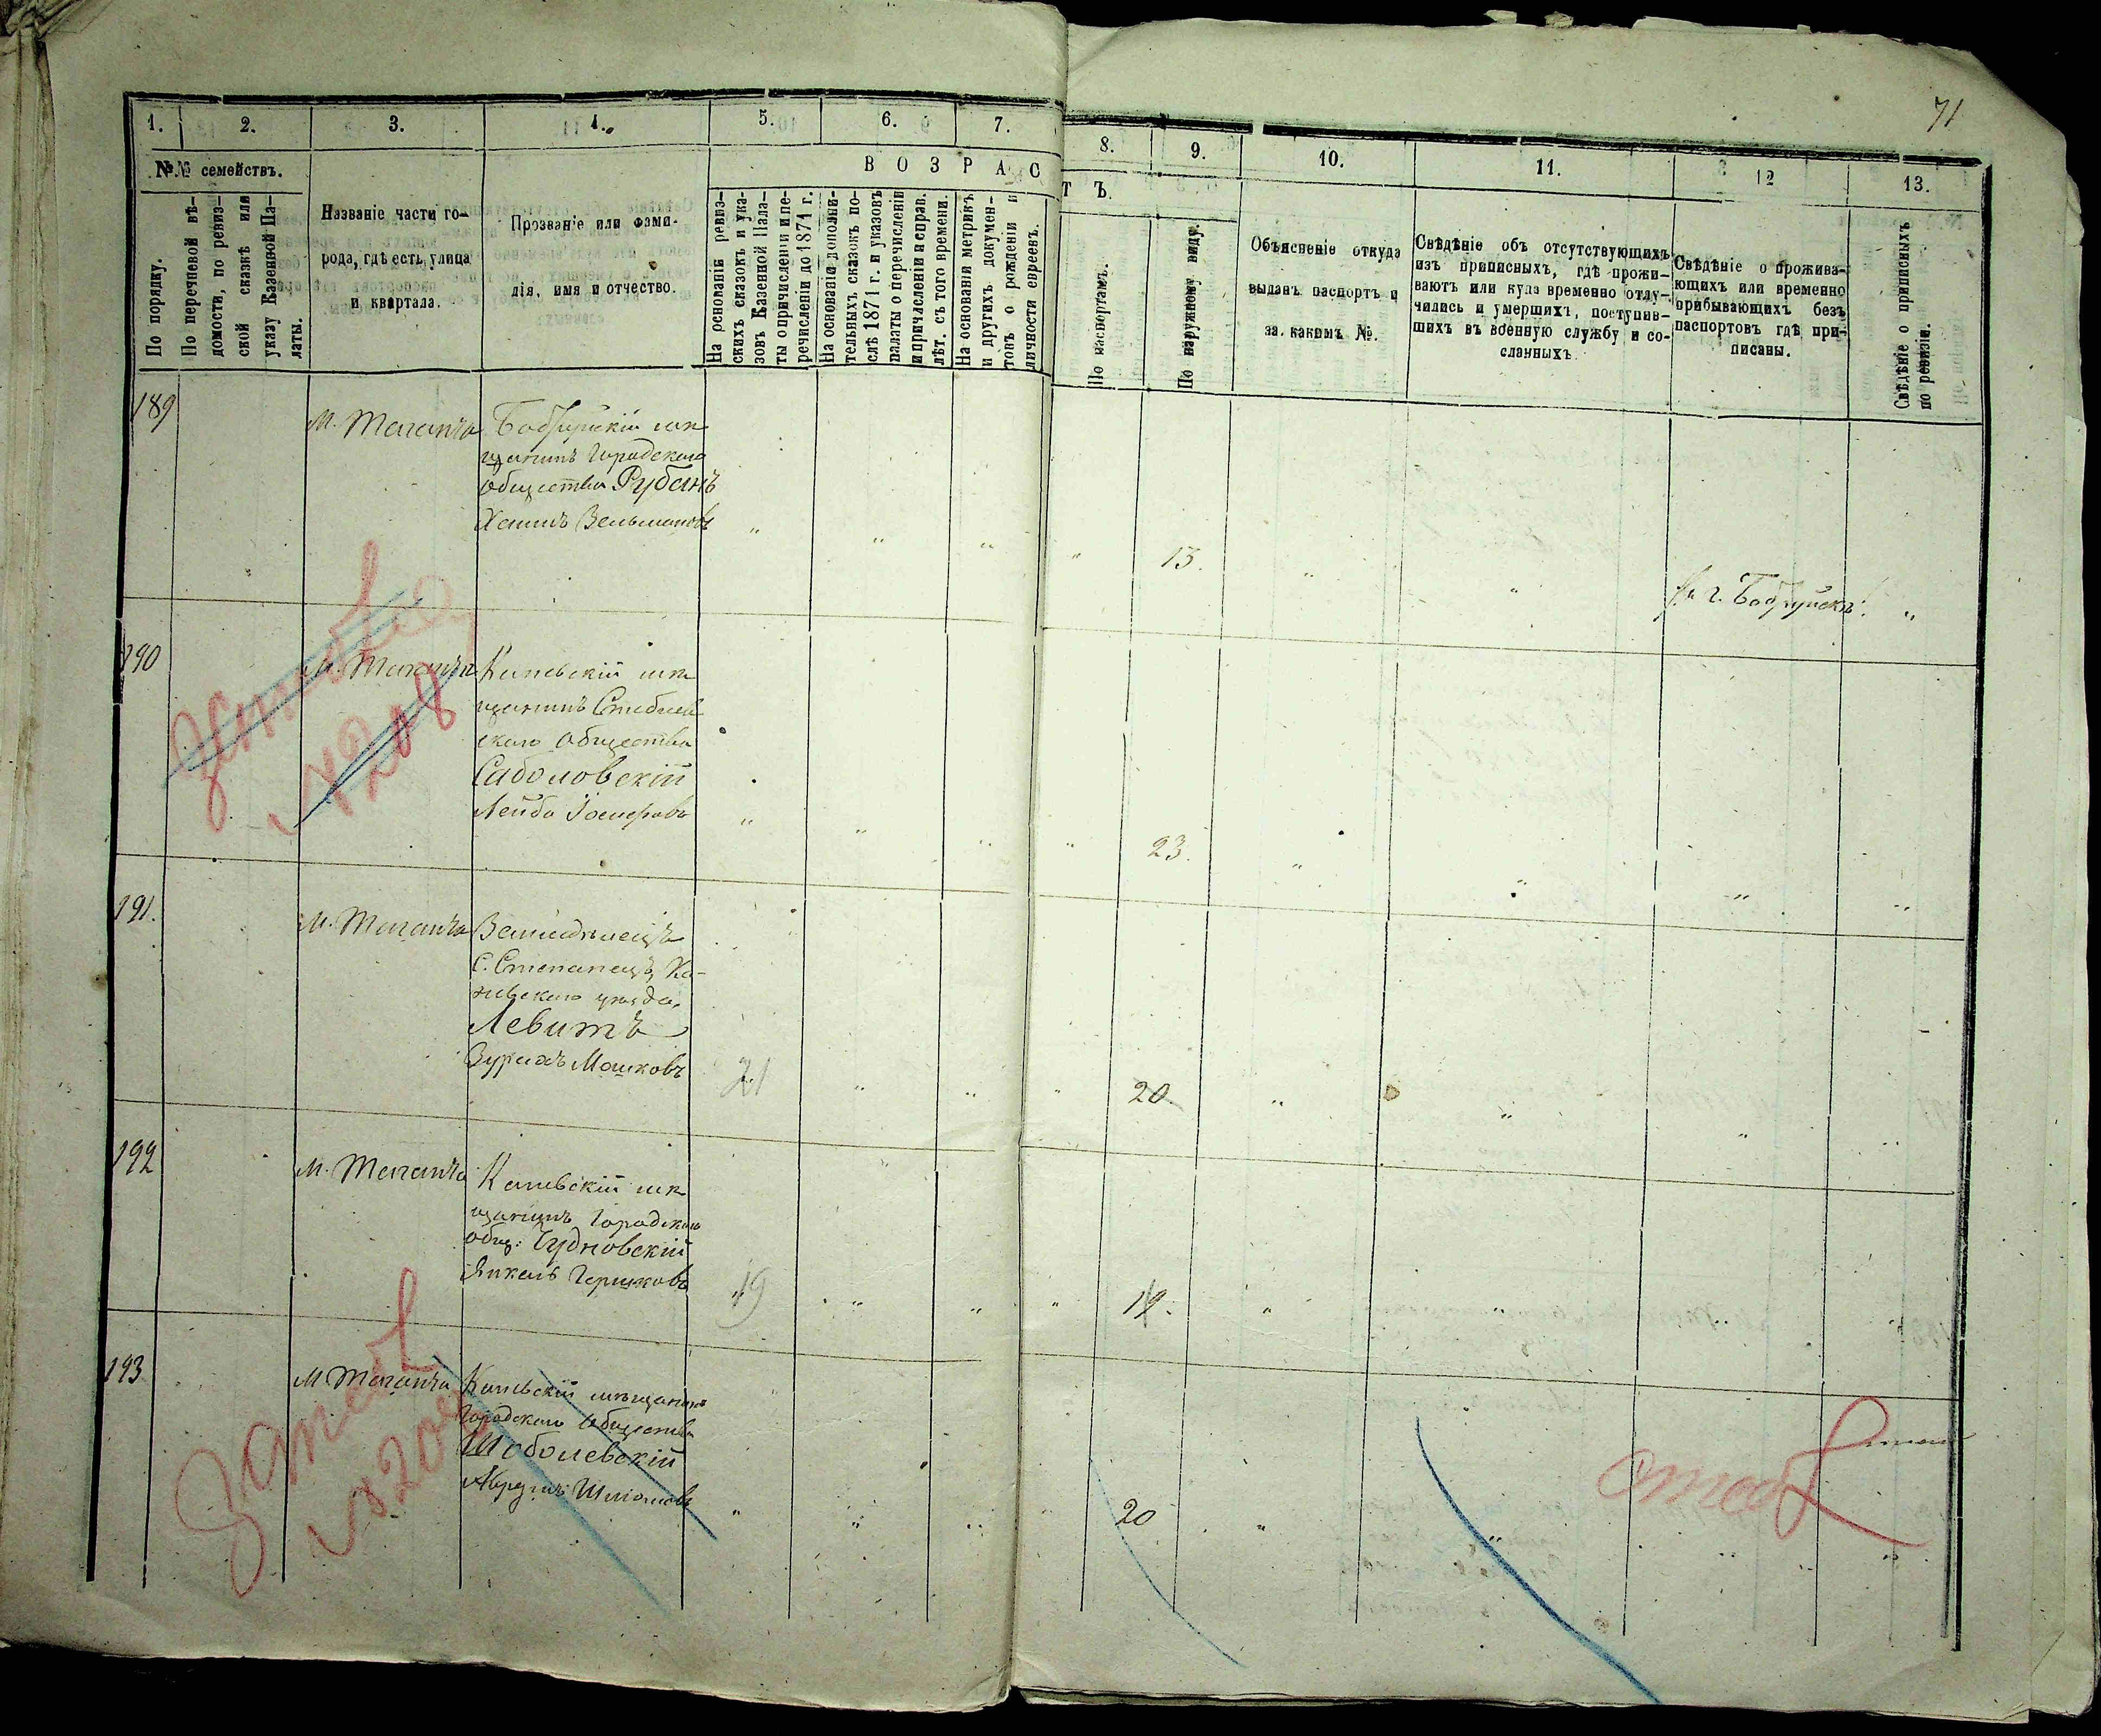 71
1. 2. 3. 4. 5. 6. 7. 8. 9. 10. 11. 12 13.
№№ семействъ.
По порядку.
По перечневой вѣ-
домости, по ревиз-
ской сказкѣ или
указу Казенной Па-
латы.
Названіе части го-
рода, гдѣ есть улица
и квартала.
Прозваніе или фами-
лія, имя и отчество.
ВОЗРАСТЪ.
На основаніи ревиз-
скихъ сказокъ и ука-
зовъ Казенной Пала-
ты о причисленіи и пе-
речисленіи до 1871 г.
На основаніи дополни-
тельныхъ сказокъ по-
слѣ 1871 г. и указовъ
палаты о перечисленіи
и причисленіи и справ.
лѣт. съ того времени.
На основаніи метрикъ
и другихъ докумен-
товъ о рожденіи и
личности евреевъ.
По паспортамъ.
По наружному виду.
Объясненіе откуда
выданъ паспортъ и
за какимъ №.
Свѣдѣніе объ отсутствующихъ
изъ приписныхъ, гдѣ прожи-
ваютъ или куда временно отлу-
чились и умершихъ, поступив-
шихъ въ военную службу и со-
сланныхъ.
Свѣдѣніе о прожива-
ющихъ или временно
прибывающихъ безъ
паспортовъ гдѣ при-
писаны.
Свѣдѣніе о приписныхъ
по ревизіи.
189
М. Таганча
Бобруйскій мѣ
щанинъ Городскаго
общества Рубанъ
13.
г. Бобруйскъ
190
М. Таганча
Каневскій мѣ
щанинъ Стеблев
скаго общества
Саболовскій
Лейба Іосифовъ
23.
№ 208
191.
М. Таганча
С. Степанецъ, Ка-
невскаго уѣзда.
Левитъ
Зурихъ Мошковъ
21
20
192
М. Таганча
Каневскій мѣ
щанинъ Городскаго
общ: Чудновскій
Янкель Гершковъ
19
19.
193
М Таганча
Каневскій мѣщанинъ
Городскаго общества
Шоболевскій
Абрумъ Шліомовъ
20